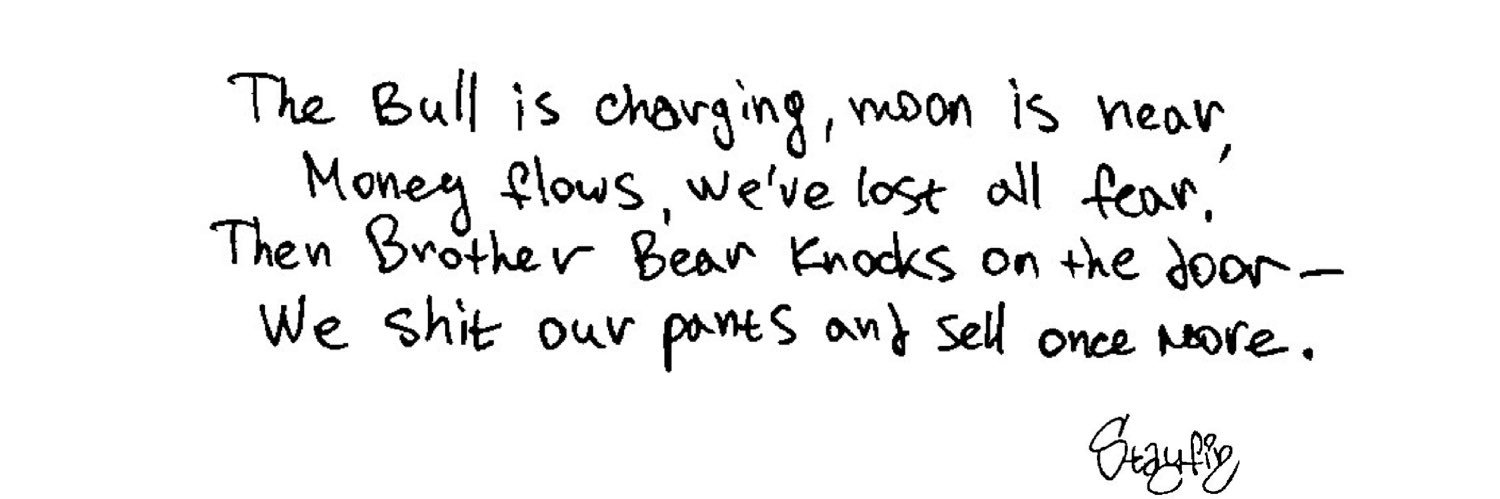 The Bull is charging, moon is near,
Money flows, we've lost all fear.
Then Brother Bear Knocks on the door—
We shit our pants and sell once more.
Stayfin